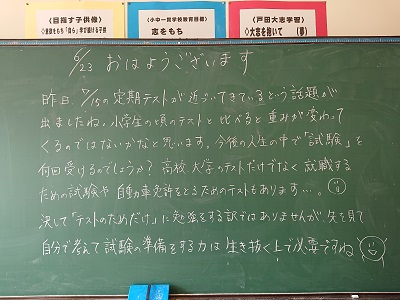 《目指す子供像》
◇意欲をもち「自ら」学び続ける子供
《小中一貫学校教育目標》
志をもち
《戸田大志学習》
◇大志を抱いて 《夢》
6/23 おはようございます
昨日、7/15の定期テストが近づいてきているという話題が
出ましたね。小学生の頃のテストと比べると重みが変わって
くるのではないかなと思います。今後の人生の中で「試験」を
何回受けるのでしょうか？高校、大学のテストだけでなく、就職する
ための試験や自動車免許をとるためのテストもあります…。
決して「テストのためだけ」に勉強をする訳ではありませんが、先を見て
自分で考えて試験の準備をする力は生き抜く上で必要ですね